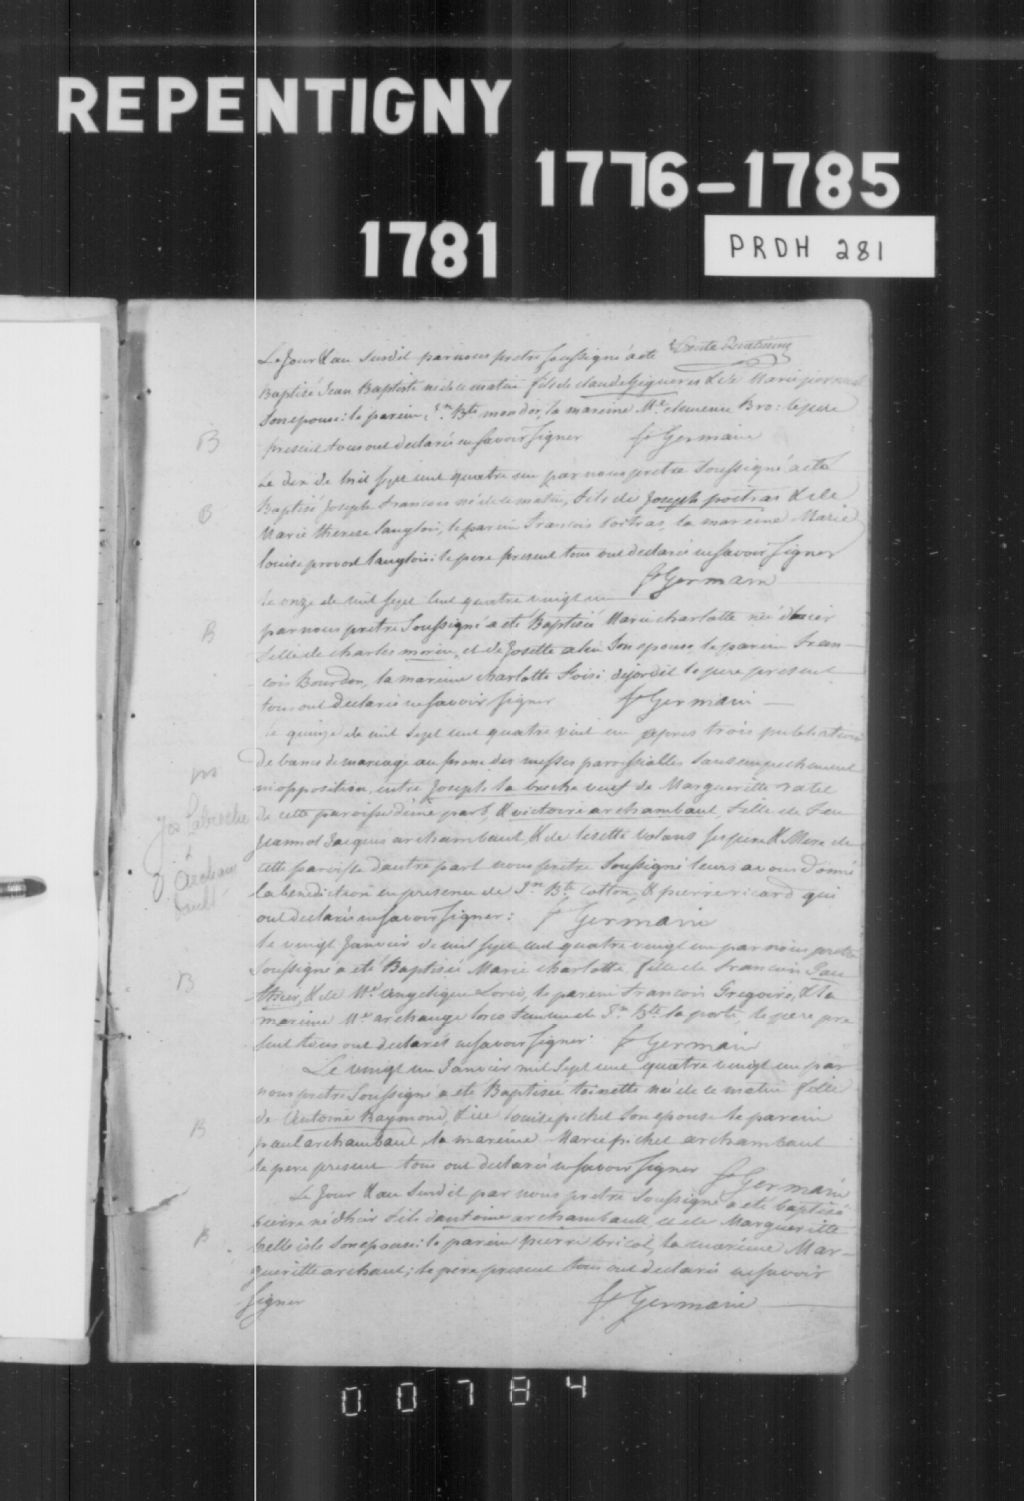 REPENTIGNY
1776-1785
1781
PRDH 281
Le Jour & an Susdit par nous pretre soussigné a eté
Baptisé Jean Baptiste né de le matin fils de claude Gigueres & de Marie
Son epouse: le parein Jn. Bte. la mareine Me. clemence Bro: le pere
B
present tous ont declarés ne savoir signer St Germain
Le dix de mil sept cent quatre par nous pretre soussigné a eté
B
Baptisé Joseph francois né de le matin, fils de Joseph poitras & de
Marie therese langlois, le parein francois Poitras, la mareine Marie
louise provost langlois: le pere present tous ont declarés ne savoir signer
St Germain
le onze de mil sept cent quatre vingt un
B
par nous pretre soussigné a eté Baptisée Marie charlotte née d'hier
fille de charles morin, et de Josette Son epouse, le parein fran
cois Bourdon, la mareine charlotte le pere present
tous ont declarés ne savoir signer St Germain
le quinze de mil sept cent quatre vint un apres trois publications
de bancs de mariage au prone des messes paroissialles sans empechement
m
ni opposition, entre Joseph la breche veuf de Margueritte ratel
Jos Labreche
&
Archam
bault
de cette paroisse d'une part, & victoire archambaut, fille de feu
Jacques archambaut, & de lisette ses pere & Mere de
cette paroisse d'autre part nous pretre soussigné leurs avons Donné
la benediction en presence de Jn Bte cotton, & pierre ricard qui
ont declarés ne savoir signer: St Germain
le vingt Janvier de mil sept cent quatre vingt un par nous pretre
soussigné a eté Baptisée Marie charlotte, fille de francois Gau
B
thier, & de Me. angelique Lorio, le parein francois Gregoire, & la
mareine Me archange femme de Jn Bte la porte, le pere pre
sent tous ont declarés ne savoir signer: St Germain
Le vingt un Janvier mil sept cent quatre vingt un par
nous pretre soussigné a eté Baptisée toinette née de le matin fille
B
de Antoine Raymond, & de louise pichet son epouse le parein
paul archambaut, la mareine Marie pichet archambaut
le pere present tous ont declarés ne savoir signer St Germain
Le Jour & an Susdit par nous pretre soussigné a eté baptisé
pierre né d'hier fils d'antoine archambault, & de Margueritte
B
belle isle son epouse: le parein pierre bricot, la mareine Mar
gueritte le pere present tous ont declarés ne savoir
signer St Germain
00784